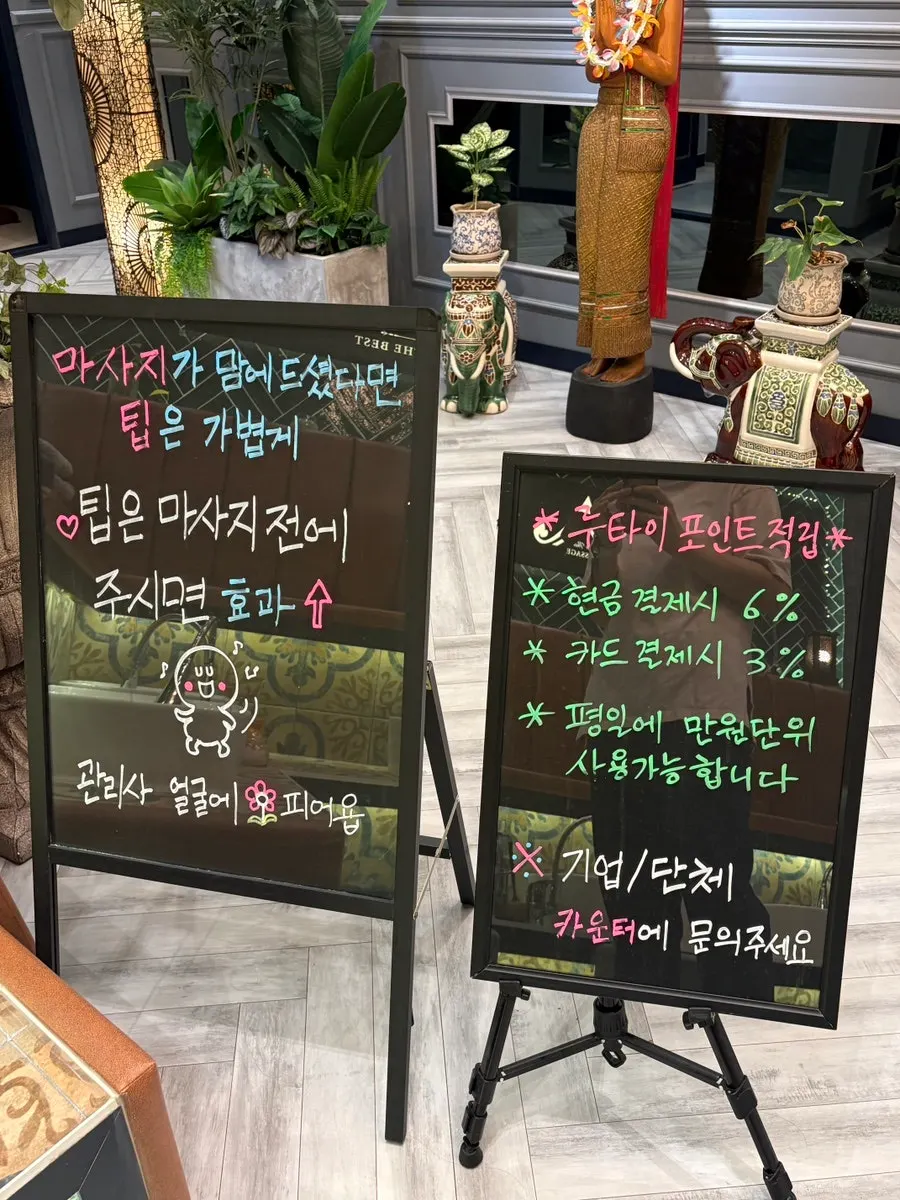 마사지가 맘에 드셨다면
팁은 가볍게
♡팁은 마사지전에
주시면 효과⇧
관리사 얼굴에 🌸피어욥
HE BEST
* 루타이 포인트적립 *
* 현금결제시 6%
* 카드결제시 3%
* 평일에 만원단위
사용가능합니다
※ 기업/단체
카운터에 문의주세요